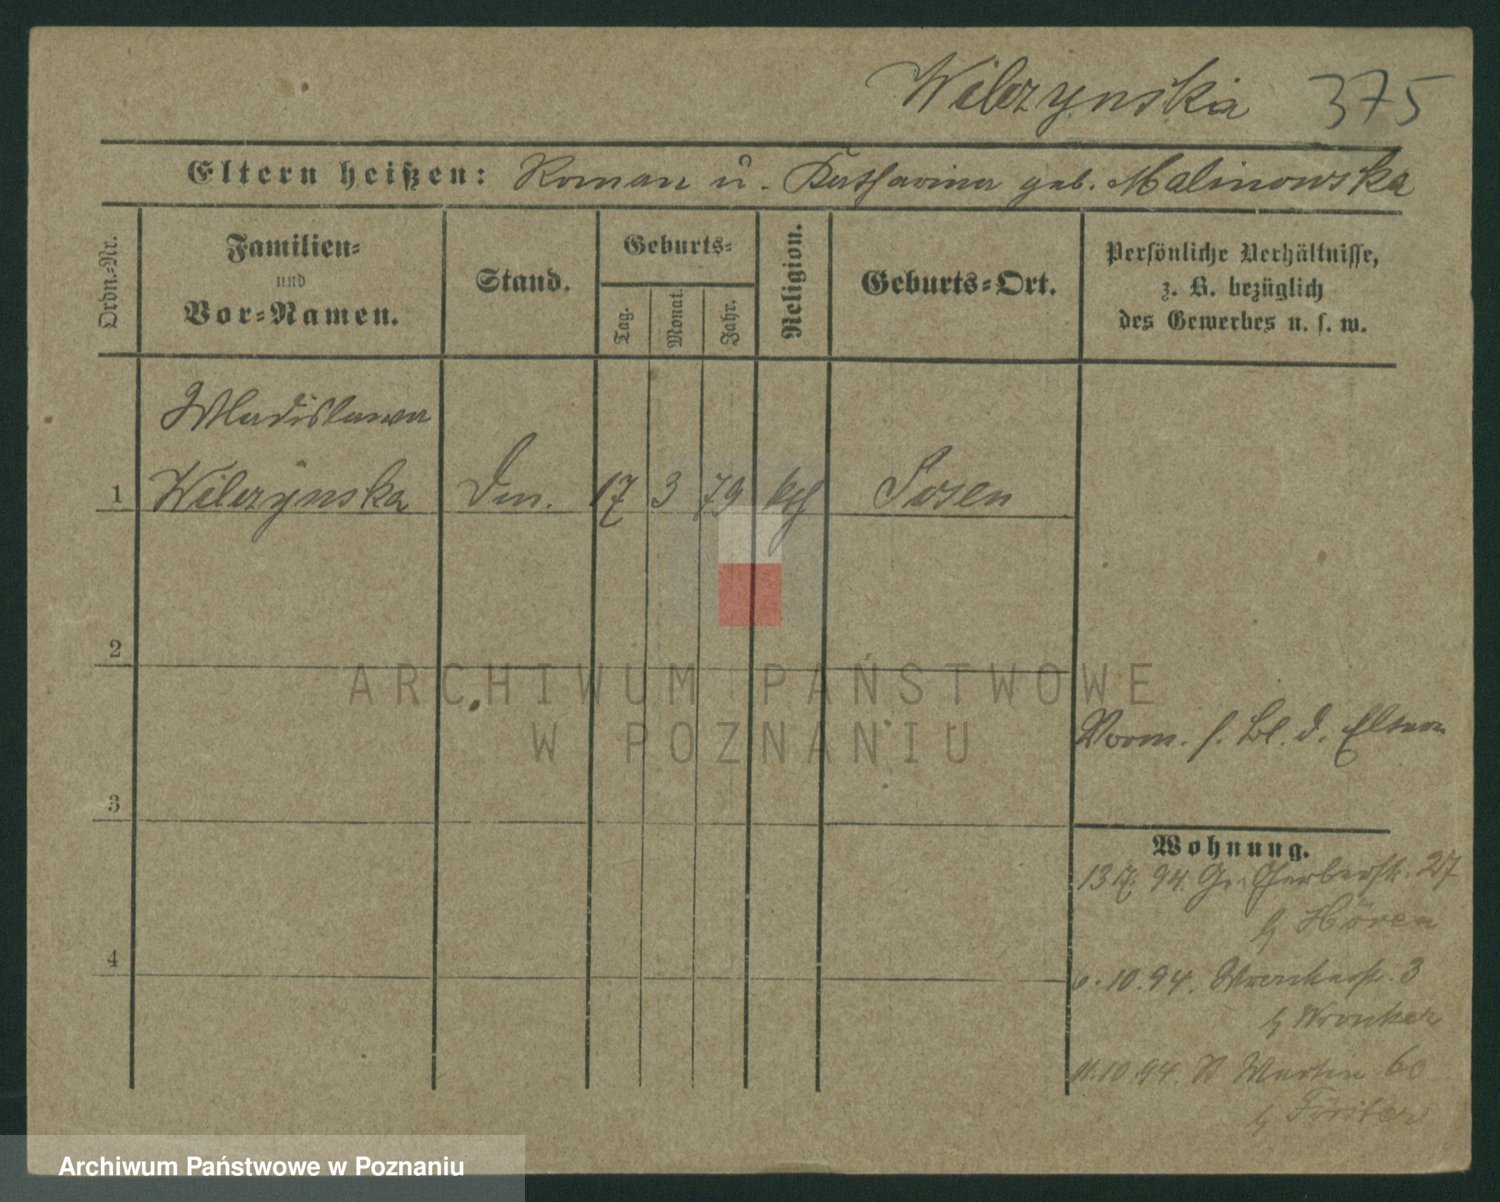 Wilczynska 375
Eltern heißen: Roman u. Katharina geb. Malinowska
Ordn.-Nr.
Familien-
und
Vor-Namen.
Stand.
Geburts-
Tag.
Monat.
Jahr.
Religion.
Geburts-Ort.
Persönliche Verhältnisse,
z. B. bezüglich
des Gewerbes u. s. w.
Wladislawa
1 Wilczynska 17 3 79 kth Posen
2
ARCHIWUM PAŃSTWOWE
W POZNANIU
Vorm. s. Bl. d. Eltern
3
Wohnung.
94. Gr. Gerberstr. 27
b/ Hören
6.10.94. Wronkerstr. 3
b/ Wronker
11.10.94. St Martin 60
b/ Förster
4
Archiwum Państwowe w Poznaniu